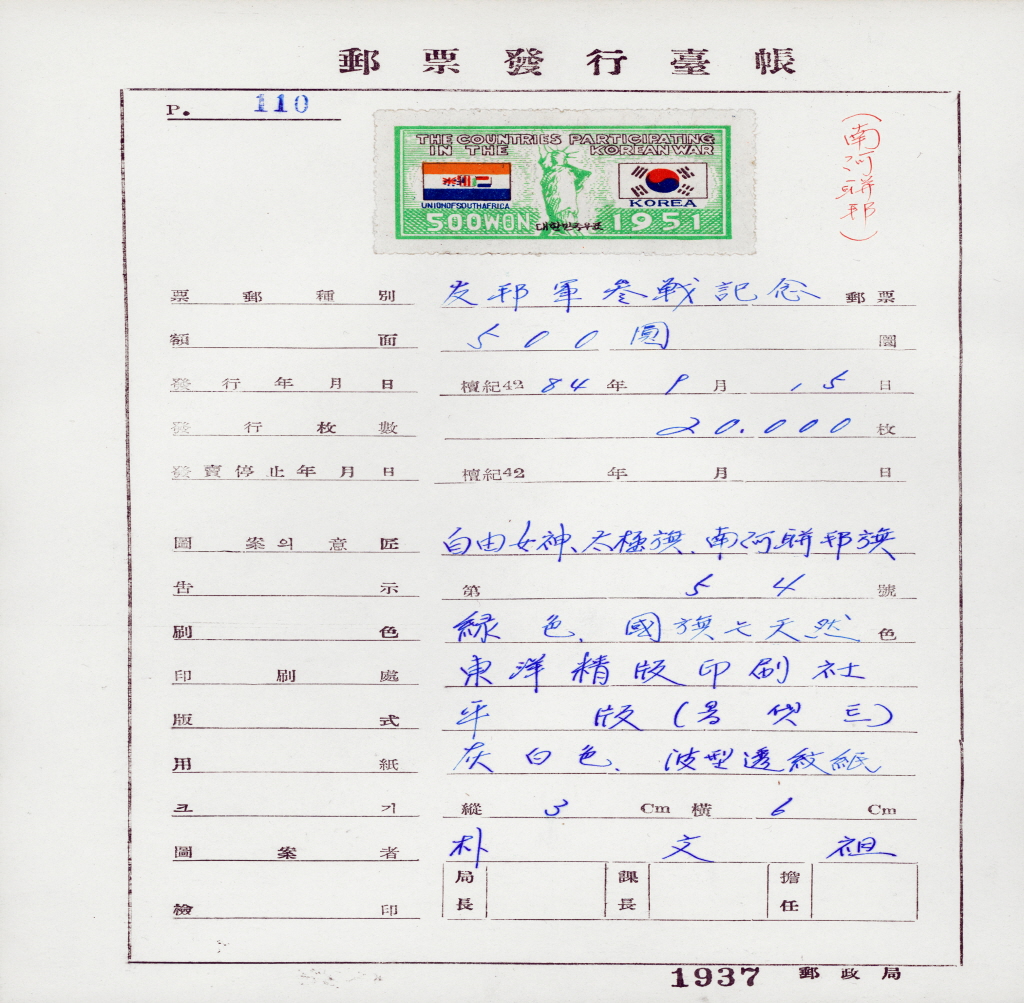 郵票發行臺帳
P. 110
THE COUNTRIES PARTICIPATING
IN THE KOREAN WAR
UNION OF SOUTH AFRICA
KOREA
500WON 대한민국우표 1951
(南阿聯邦)
票郵種別 友邦軍參戰記念 郵票
額面 500圓 圜
發行年月日 檀紀4284年9月15日
發行枚數 20.000枚
發賣停止年月日 檀紀42 年 月 日
圖案의意匠 自由女神、太極旗、南阿聯邦旗
告示 第54號
刷色 綠色、國旗는天然色
印刷處 東洋精版印刷社
版式 平版
用紙 灰白色、波型透紋紙
크기 縱3Cm 橫6Cm
圖案者 朴文祖
檢印 局長 課長 擔任
1937 郵政局